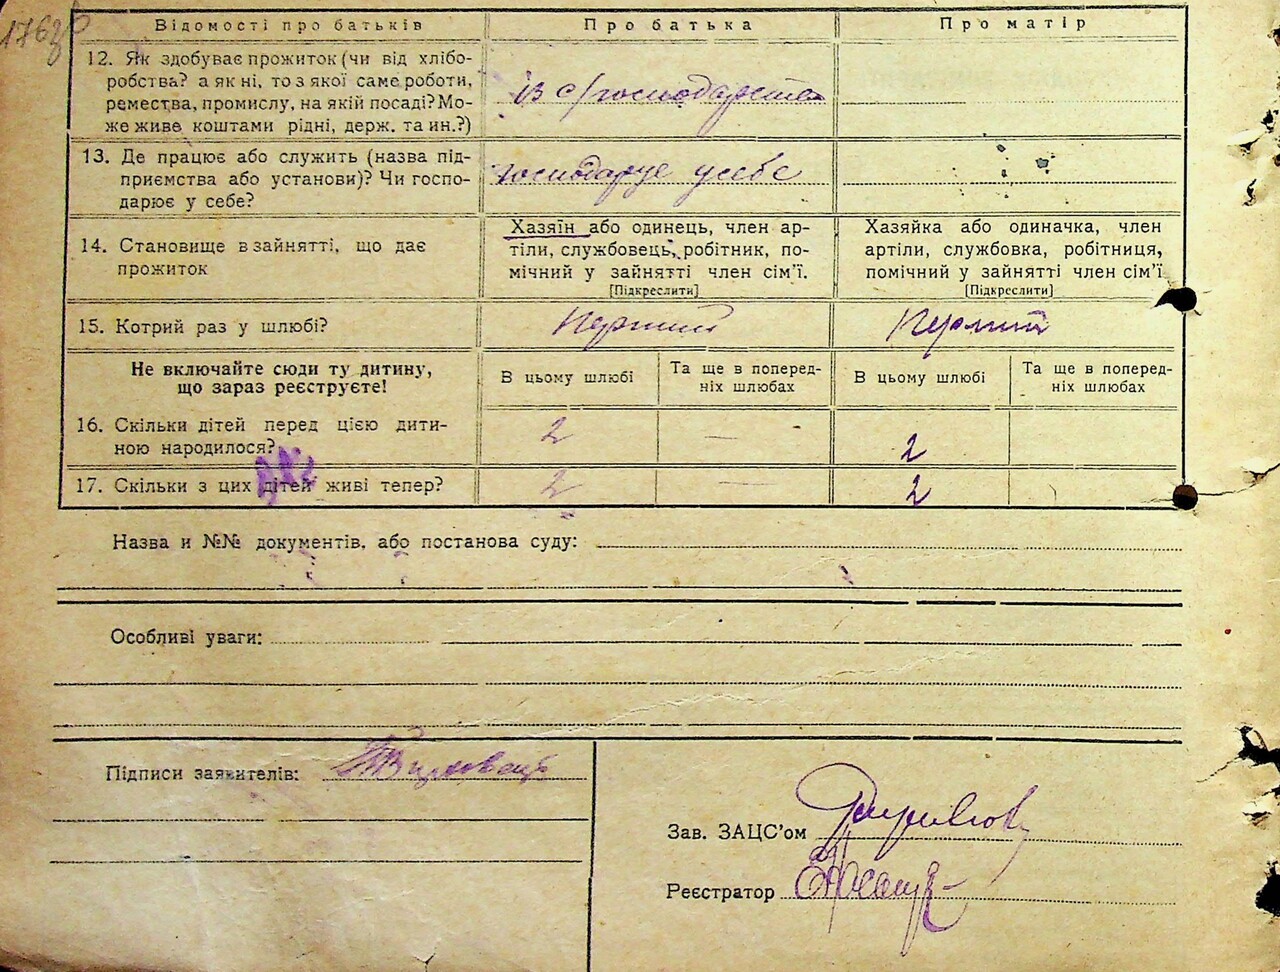 176зв
Відомості про батьків
Про батька
Про матір
12. Як здобуває прожиток (чи від хлібо-
робства? а як ні, то з якої саме роботи,
ремества, промислу, на якій посаді? Мо-
же живе коштами рідні, держ. та ин.?)
із с/господарства
13. Де працює або служить (назва під-
приємства або установи)? Чи госпо-
дарює у себе?
господарує у себе
14. Становище в зайнятті, що дає
прожиток
Хазяїн або одинець, член ар-
тіли, службовець, робітник, по-
мічний у зайнятті член сім'ї.
[Підкреслити]
Хазяйка або одиначка, член
артіли, службовка, робітниця,
помічний у зайнятті член сім'ї
[Підкреслити]
15. Котрий раз у шлюбі?
Перший
Перший
Не включайте сюди ту дитину,
що зараз реєструєте!
В цьому шлюбі
Та ще в поперед-
ніх шлюбах
В цьому шлюбі
Та ще в поперед-
ніх шлюбах
16. Скільки дітей перед цією дити-
ною народилося?
2
—
2
17. Скільки з цих дітей живі тепер?
2
—
2
Назва и №№ документів, або постанова суду:
Особливі уваги:
Підписи заявителів:
Зав. ЗАЦС'ом
Реєстратор